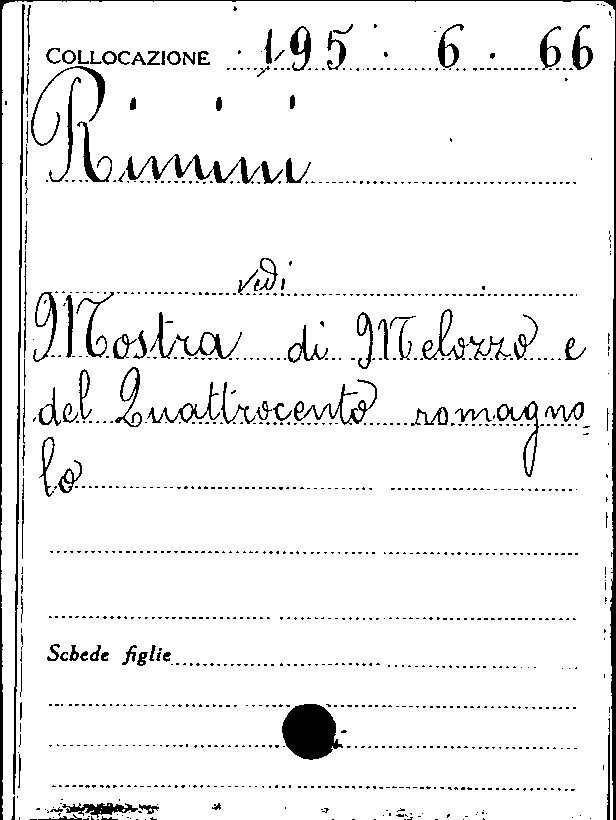 COLLOCAZIONE 195. 6. 66
Rimini
vedi
Mostra di Melozzo e
del Quattrocento romagno=
lo
Schede figlie